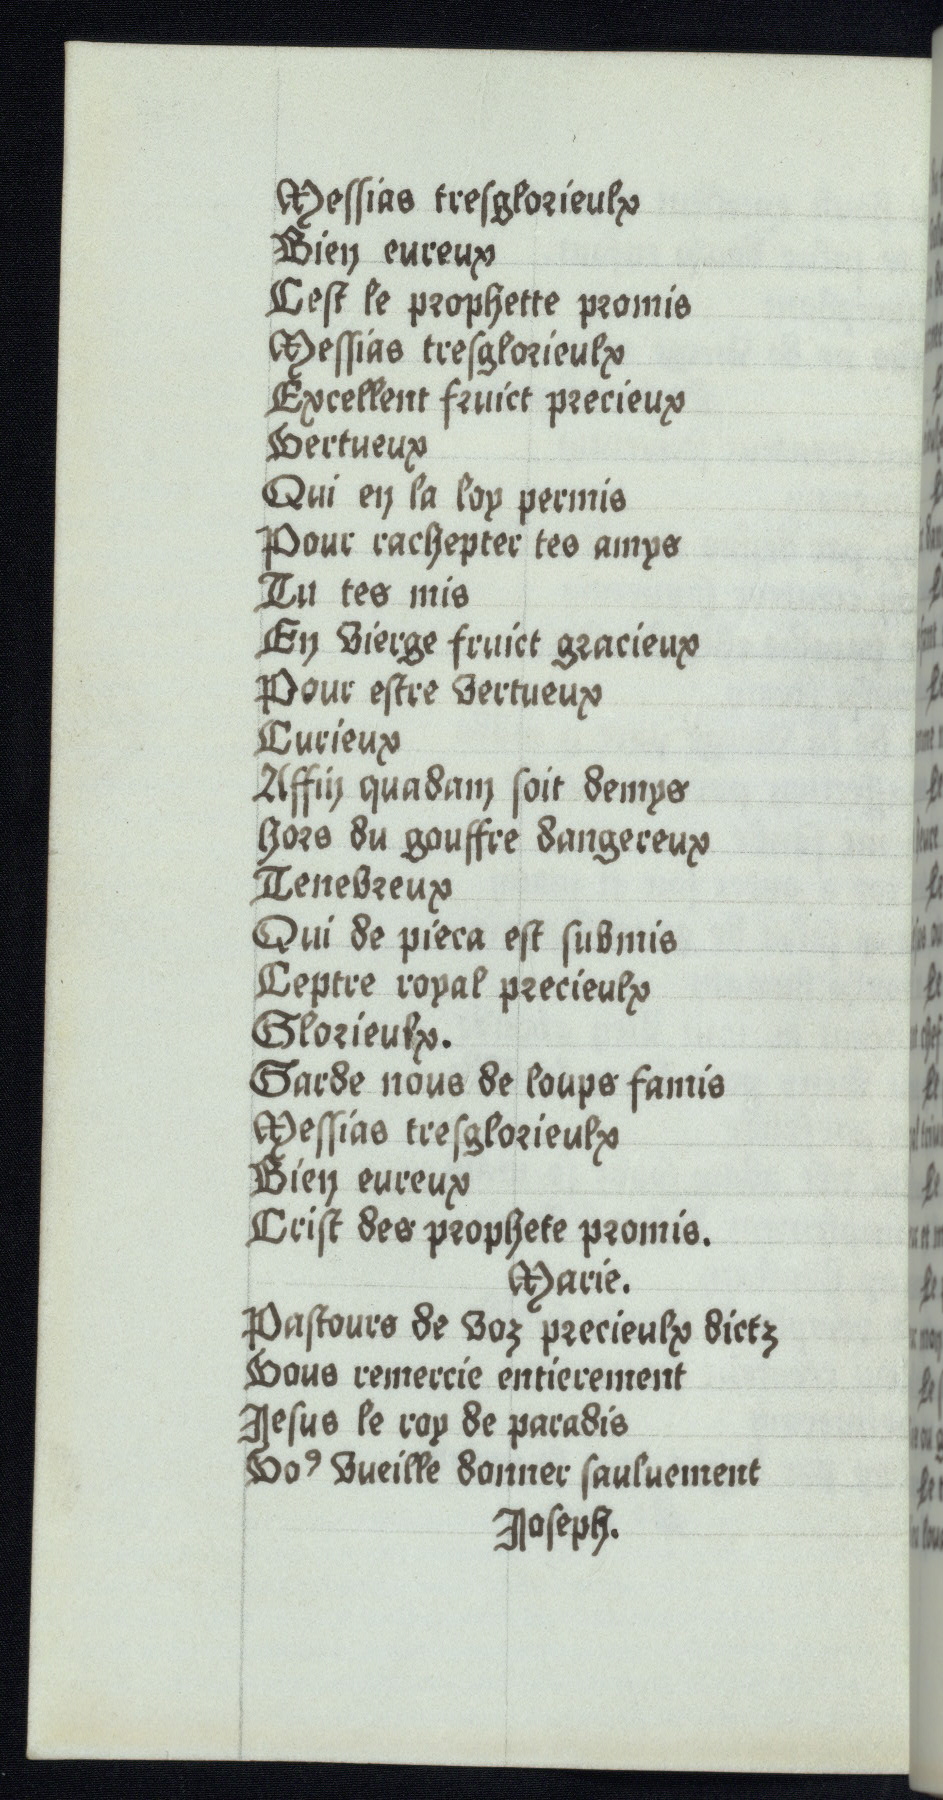 Messias tresglorieulx
Bien eureux
Cest le prophette promis
Messias tresglorieulx
Excellent fruict precieux
Vertueux
Qui en la loy permis
Pour rachepter tes amys
Tu tes mis
En vierge fruict gracieux
Pour estre vertueux
Curieux
Affin quadam soit demys
hors du gouffre dangereux
Tenebreux
Qui de pieca est submis
Ceptre royal precieulx
Glorieulx.
Garde nous de loups famis
Messias tresglorieulx
Bien eureux
Crist des prophete promis.
Marie.
Pastours de voz precieulx dictz
Vous remercie entierement
Jesus le roy de paradis
Voꝰ vueille donner sauluement
Joseph.